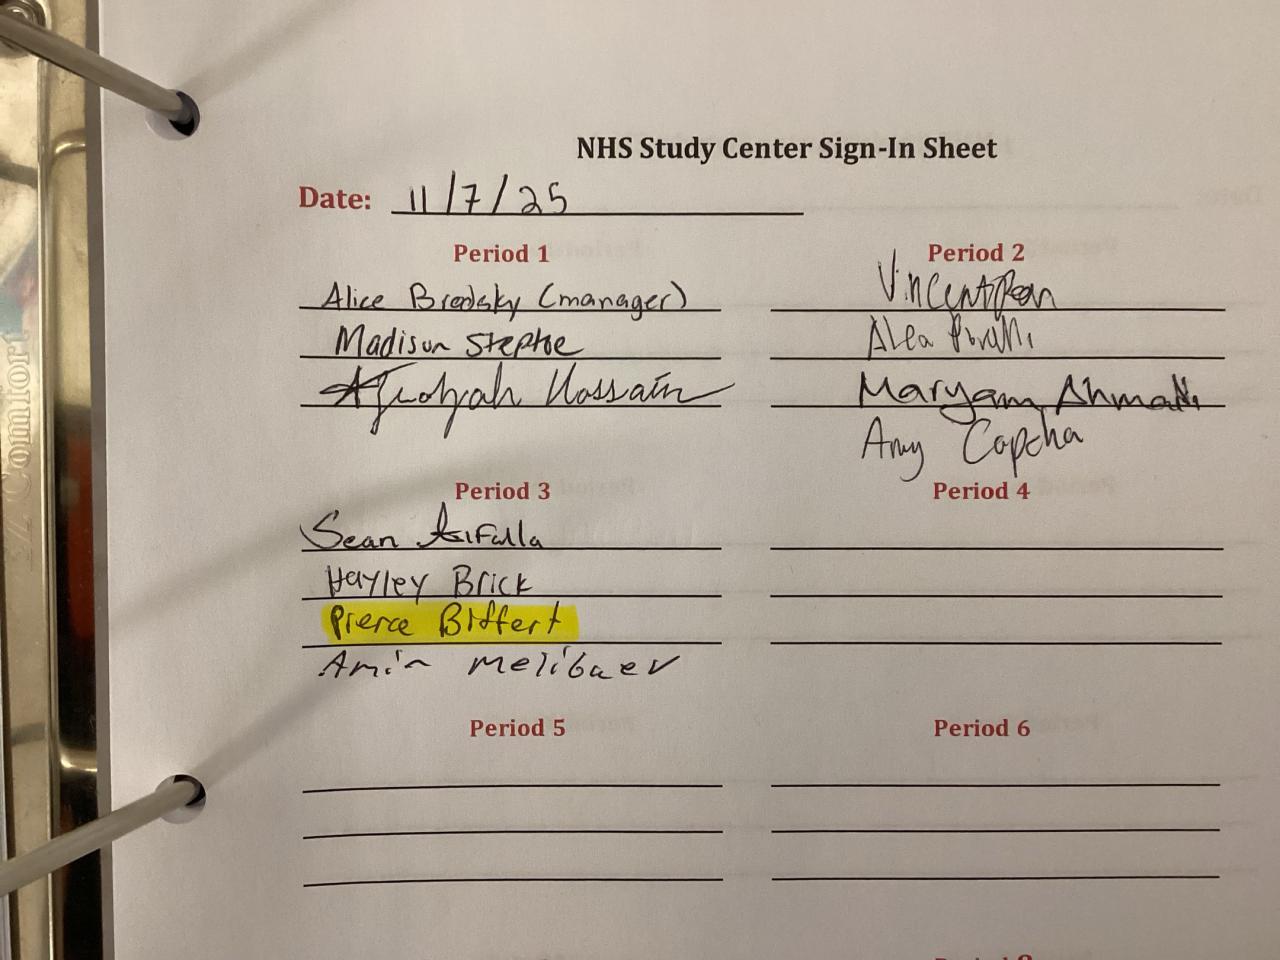 NHS Study Center Sign-In Sheet
Date: 11/7/25
Period 1
Alice Brodsky (manager)
Madison Steptoe
Hossain
Period 2
Vincent
Alea
Maryam Ahmadi
Amy Capcha
Period 3
Sean
Hayley Brick
Pierce Biffert
Amin Melibaev
Period 4
Period 5
Period 6
Comfort